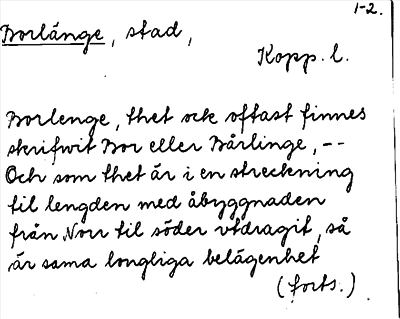 1-2.
Borlänge, stad,
Kopp. l.
Borlenge, thet ock offast finnes
skrifwit Bor eller Bårlinge, --
Och som thet är i en streckning
til lengden med åbyggnaden
från Norr til söder vtdragit, så
är sama longliga belägenhet
(forts.)